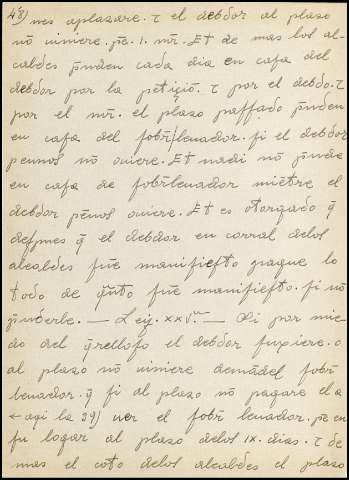 48) nes aplazare. τ el debdor al plazo
nõ viniere. p̃e. 1. mr̃. Et de mas los al-
caldes p̃nden cada dia en casa del
debdor por la petiçiõ. τ por el debdo. τ
por el mr̃. el plazo passado p̃nden
en casa del sobr̃leuador. si el debdor
pennos nõ ouiere. Et nadi nõ p̃nda
en casa de sobr̃leuador miẽtre el
debdor pẽnos ouiere. Et es otorgado q̃
despues q̃ el debdor en corral delos
alcaldes fue manifiesto pague lo
todo de q̃nto fue manifiesto. si nõ
— Ley. xxv —
Si por mie-
do del q̃relloso el debdor fuxiere. o
al plazo nõ viniere demãdel sobr̃
leuador. q̃ si al plazo nõ pagare el a
← aqi la 39) uer el sobr̃ leuador. p̃e en
su logar al plazo delos ix. dias. τ de
mas el coto delos alcaldes el plazo